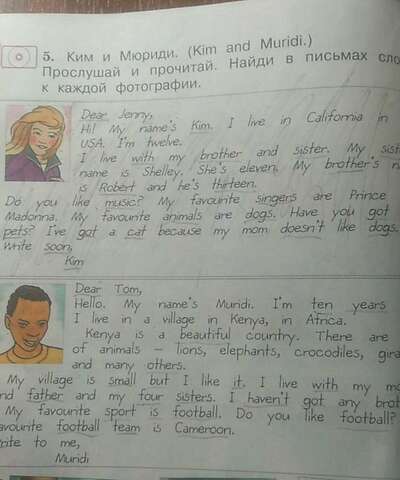 5. Ким и Мюриди. (Kim and Muridi.)
Прослушай и прочитай. Найди в письмах сло
к каждой фотографии.
Dear Jenny,
Hi! My name's Kim. I live in California in
USA. I'm twelve.
I live with my brother and sister. My sist
name is Shelley. She's eleven. My brother's n
is Robert and he's thirteen.
Do you like music? My favourite singers are Prince
Madonna. My favourite animals are dogs. Have you got
pets? I've got a cat because my mom doesn't like dogs.
Write soon,
Kim
Dear Tom,
Hello. My name's Muridi. I'm ten years
I live in a village in Kenya, in Africa.
Kenya is a beautiful country. There are
of animals – lions, elephants, crocodiles, gira
and many others.
My village is small but I like it. I live with my mo
nd father and my four sisters. I haven't got any brot
My favourite sport is football. Do you like football?
avourite football team is Cameroon.
rite to me,
Muridi